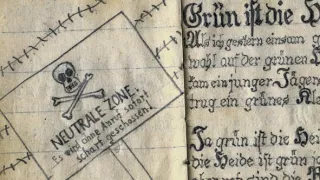 NEUTRALE ZONE.
Es wird ohne Anruf sofort
scharf geschossen!
Grün ist die H
Als ich gestern einsam g
wohl auf der grünen
kam ein junger Jägers
trug ein grünes Kle
Ja grün ist die Heid
die Heide ist grün
sind die